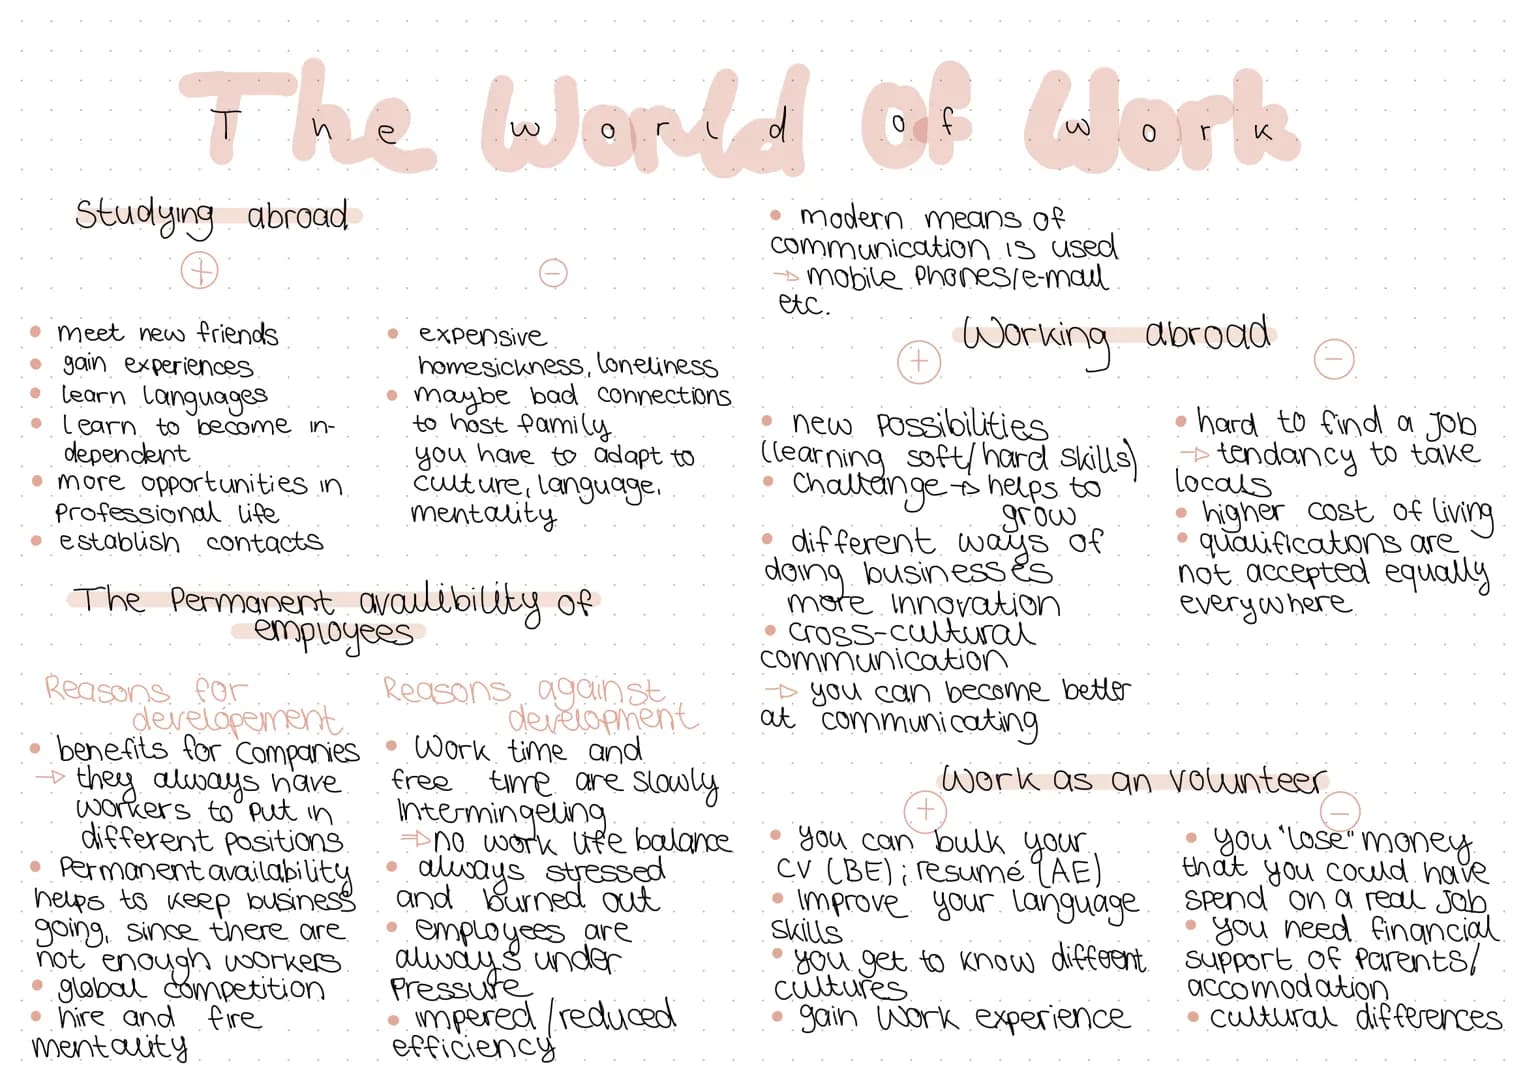 The World Of Work
Studying abroad
+
-
• meet new friends
• gain experiences
• learn languages
• learn to become in-
dependent
• more opportunities in
professional life
• establish contacts
• expensive
homesickness, loneliness
• maybe bad connections
to host family
you have to adapt to
culture, language,
mentality
The Permanent availibility of
employees
Reasons for
developement
• benefits for companies
→ they always have
workers to put in
different positions
• Permanent availability
helps to keep business
going, since there are
not enough workers
• global competition
• hire and fire
mentality
Reasons against
development
• Work time and
free time are slowly
intermingeling
⇒ no work life balance
• always stressed
and burned out
• employees are
always under
Pressure
• impered/reduced
efficiency
• modern means of
communication is used
→ mobile phones/e-mail
etc.
Working abroad
+
-
• new possibilities
(learning soft/hard skills)
• Challange → helps to
grow
• different ways of
doing businesses
more innovation
• cross-cultural
communication
→ you can become better
at communicating
• hard to find a job
→ tendancy to take
locals
• higher cost of living
• qualifications are
not accepted equally
everywhere
Work as an volunteer
+
-
• you can bulk your
CV (BE); resumé (AE)
• Improve your language
skills
• you get to know different
cultures
• gain work experience
• you "lose" money
that you could have
spend on a real job
• you need financial
support of parents/
accomodation
• cultural differences